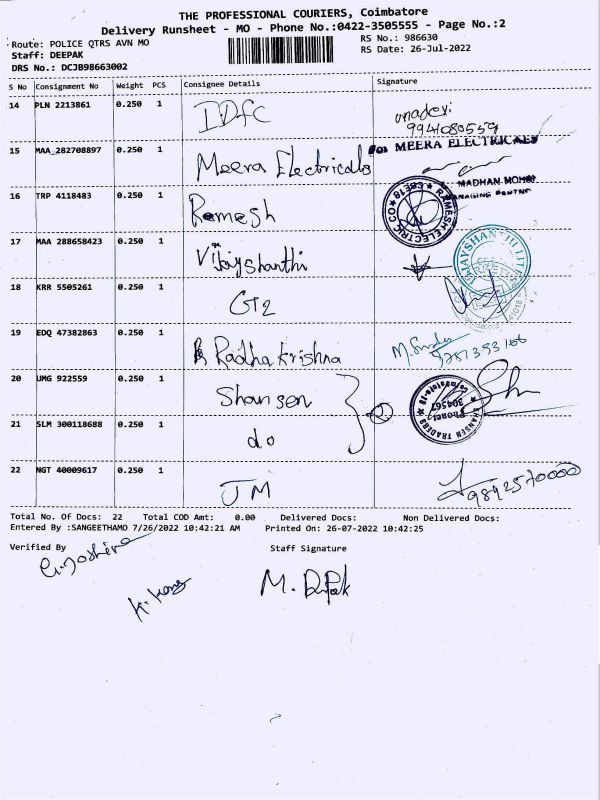 THE PROFESSIONAL COURIERS, Coimbatore
Delivery Runsheet - MO - Phone No.:0422-3505555 - Page No.:2
Route: POLICE QTRS AVN MO
RS No.: 986630
Staff: DEEPAK
RS Date: 26-Jul-2022
DRS No.: DCJB98663002
S No Consignment No Weight PCS Consignee Details Signature
14 PLN 2213861 0.250 1 IDfc
9941080559
15 MAA 282708897 0.250 1 Meera Electricalls For MEERA ELECTRICALS
MADHAN MOHAN
MANAGING PARTNER
16 TRP 4118483 0.250 1 Ramesh
RAMESH ELECTRIC CO
17 MAA 288658423 0.250 1 Vijayshanthi
18 KRR 5505261 0.250 1 G12
19 EDQ 47382863 0.250 1 Radha krishna
20 UMG 922559 0.250 1 Shansen
SHANSEN TRADERS
21 SLM 300118688 0.250 1 do
22 NGT 40009617 0.250 1 JM 9842570000
Total No. Of Docs: 22 Total COD Amt: 0.00 Delivered Docs: Non Delivered Docs:
Entered By :SANGEETHAMO 7/26/2022 10:42:21 AM Printed On: 26-07-2022 10:42:25
Verified By Staff Signature